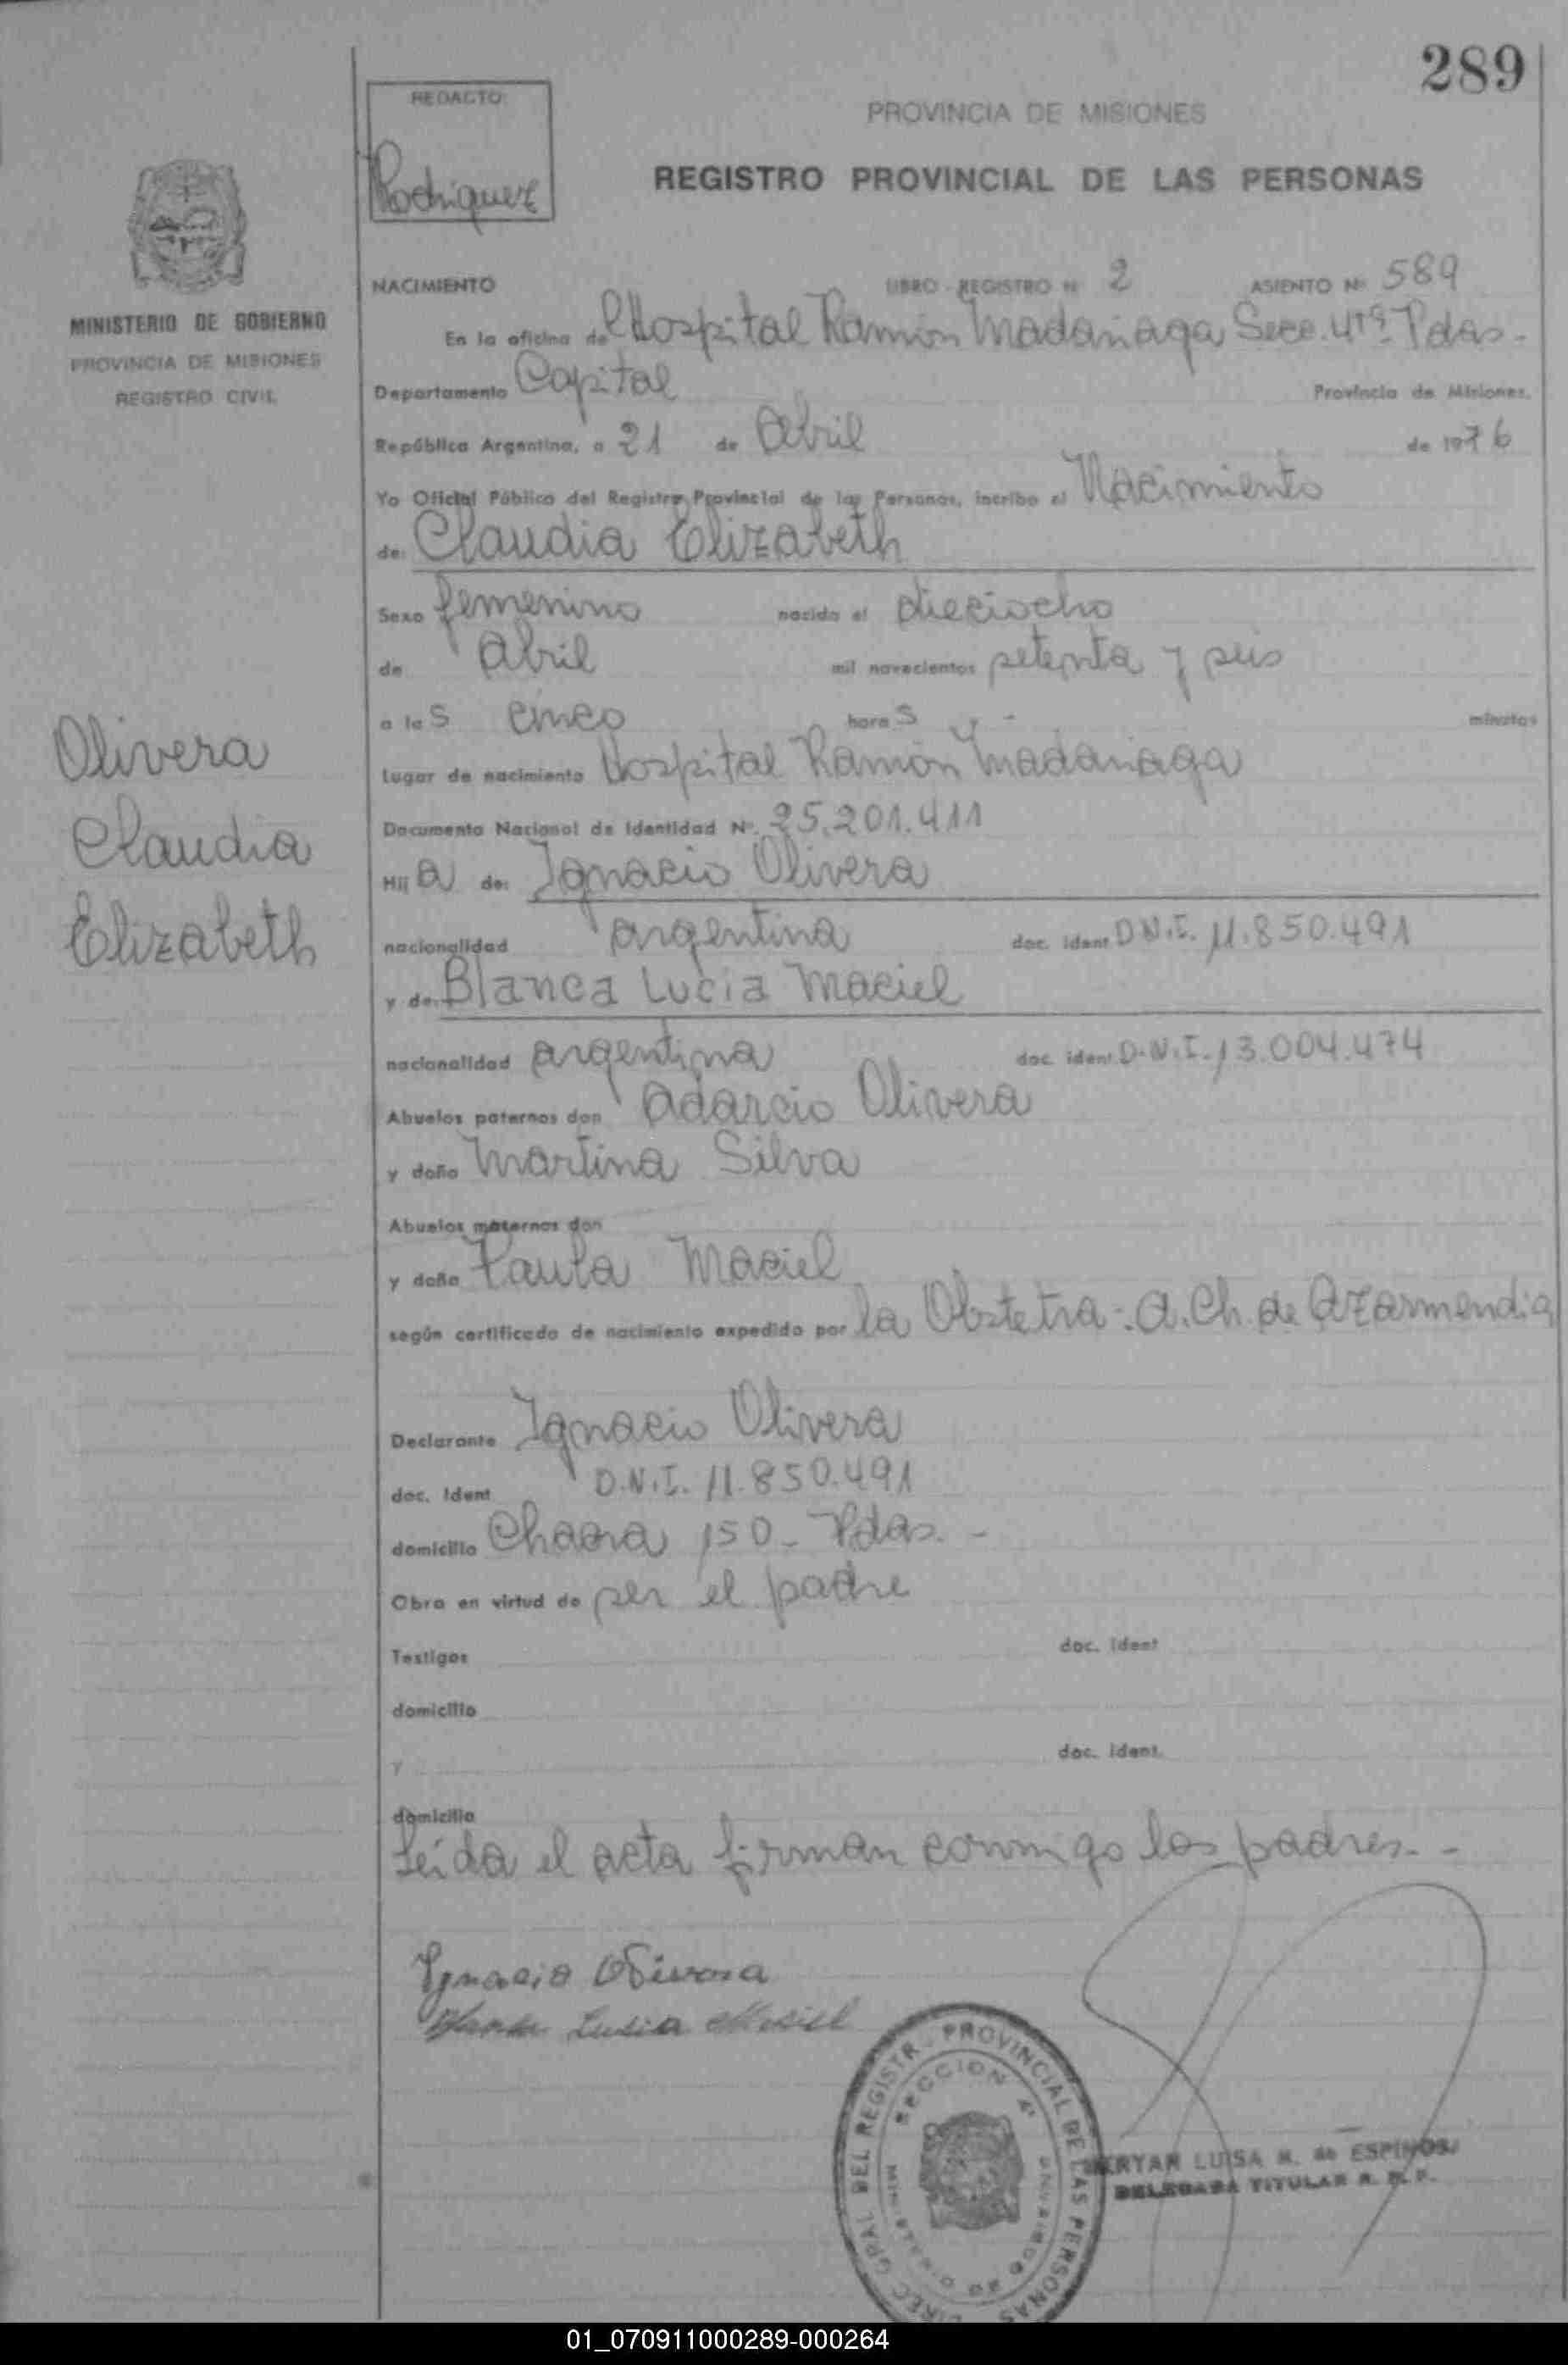 289
REDACTO:
Rodriguez
PROVINCIA DE MISIONES
REGISTRO PROVINCIAL DE LAS PERSONAS
MINISTERIO DE GOBIERNO
PROVINCIA DE MISIONES
REGISTRO CIVIL
NACIMIENTO LIBRO - REGISTRO Nº 2 ASIENTO Nº 589
En la oficina del Hospital Ramón Madariaga Secc. 4ta. Pdas.-
Departamento Capital Provincia de Misiones,
República Argentina, a 21 de Abril de 1976
Yo Oficial Público del Registro Provincial de las Personas, incribo el Nacimiento
de: Claudia Elizabeth
Sexo femenino nacido el dieciocho
de Abril mil novecientos setenta y seis
a las cinco horas - minutos
Lugar de nacimiento Hospital Ramón Madariaga
Documento Nacional de Identidad Nº. 25.201.411
Olivera
Claudia
Elizabeth
Hija de: Ignacio Olivera
nacionalidad argentina doc. ident. D.N.I. 11.850.491
y de: Blanca Lucia Maciel
nacionalidad argentina doc. ident. D.N.I. 13.004.474
Abuelos paternos don Adarcio Olivera
y doña Martina Silva
Abuelos maternos don
y doña Paula Maciel
según certificado de nacimiento expedido por la Obstetra: A. Ch. de Azarmendia
Declarante Ignacio Olivera
doc. Ident D.N.I. 11.850.491
domicilio Chacra 150 - Pdas. -
Obra en virtud de ser el padre
Testigos doc. Ident
domicilio
y doc. Ident.
domicilio
Leida el acta firman conmigo los padres. -
Ignacio Olivera
Lucia Maciel
DIREC. GRAL. DEL REGISTR. PROVINCIAL DE LAS PERSONAS
SECCION 4ª
LUISA M. de ESPINOSA
DELEGADA TITULAR R. P. P.
01_070911000289-000264